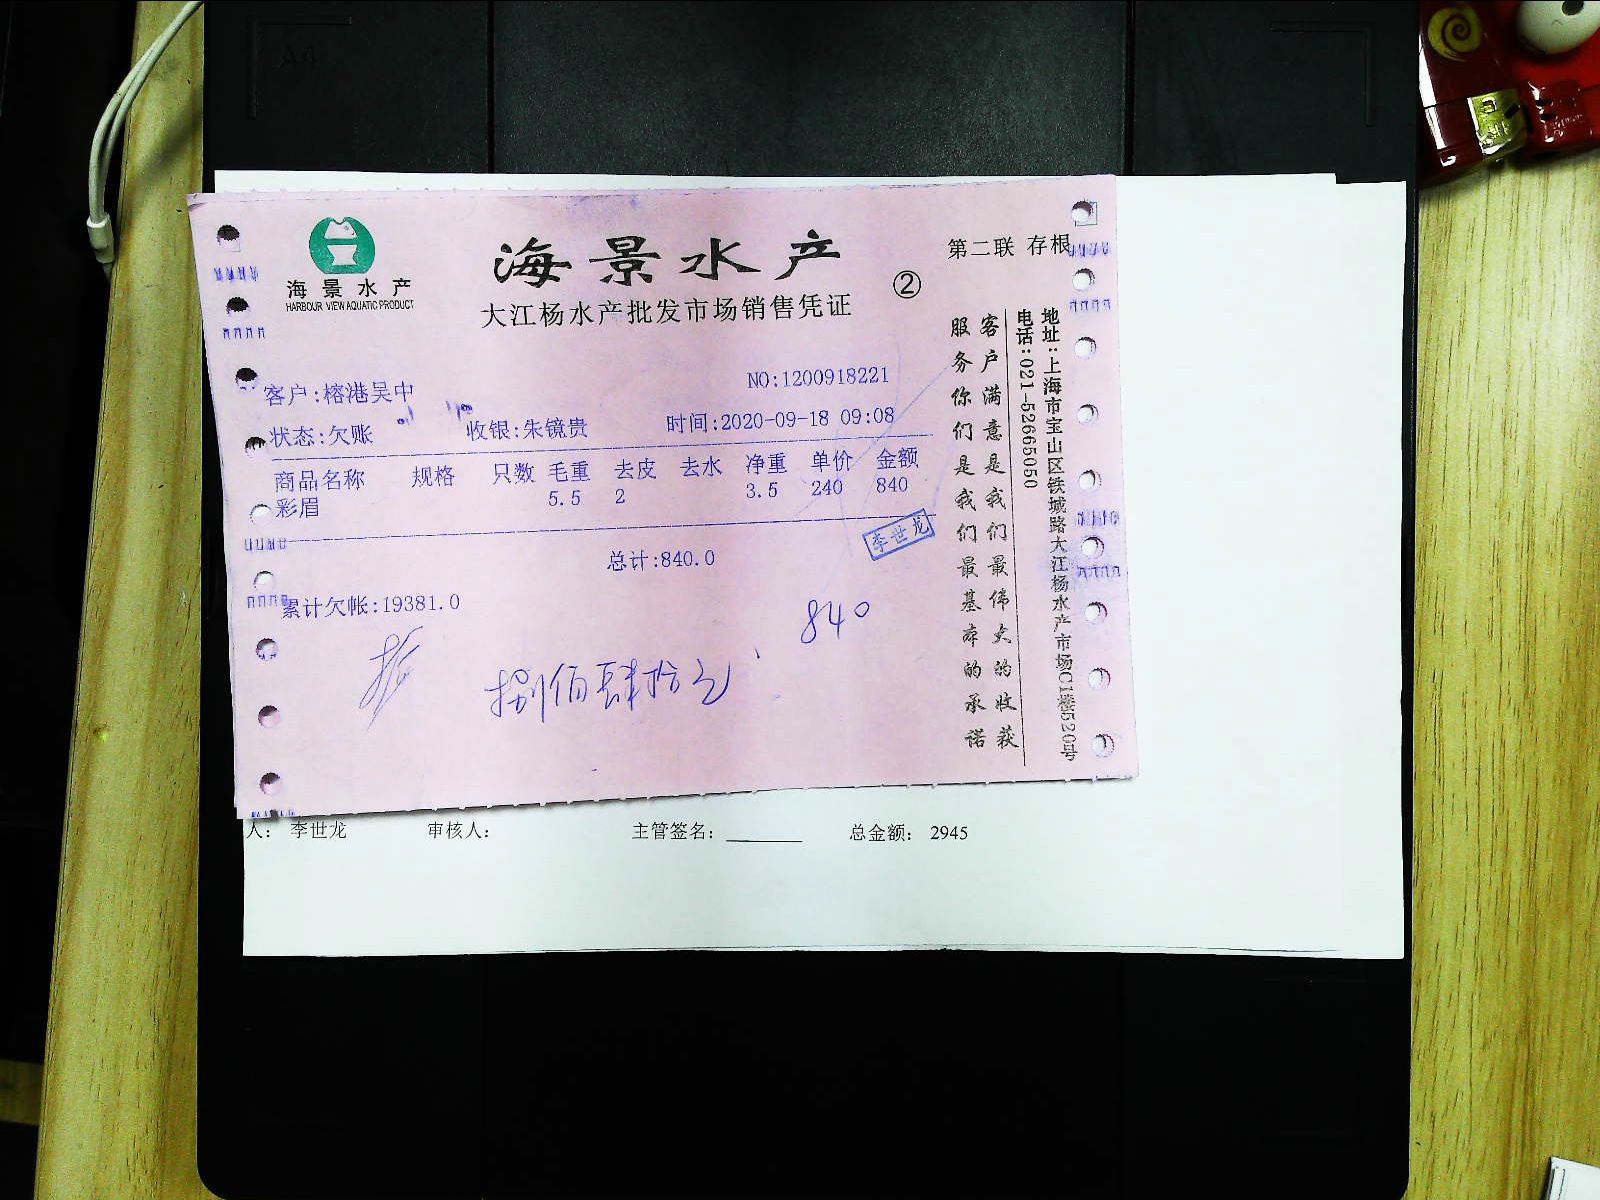 海景水产
HARBOUR VIEW AQUATIC PRODUCT
海景水产
大江杨水产批发市场销售凭证
②
第二联 存根
客户:榕港吴中
NO:1200918221
状态:欠账 收银:朱镜贵 时间:2020-09-18 09:08
商品名称 规格 只数 毛重 去皮 去水 净重 单价 金额
彩眉 5.5 2 3.5 240 840
李世龙
总计:840.0
累计欠帐:19381.0
840
捌佰肆拾元
客户满意是我们最伟大的收获
服务你们是我们最基本的承诺
地址:上海市宝山区铁城路大江杨水产市场C1楼520号
电话:021-52665050
人: 李世龙 审核人: 主管签名: 总金额: 2945